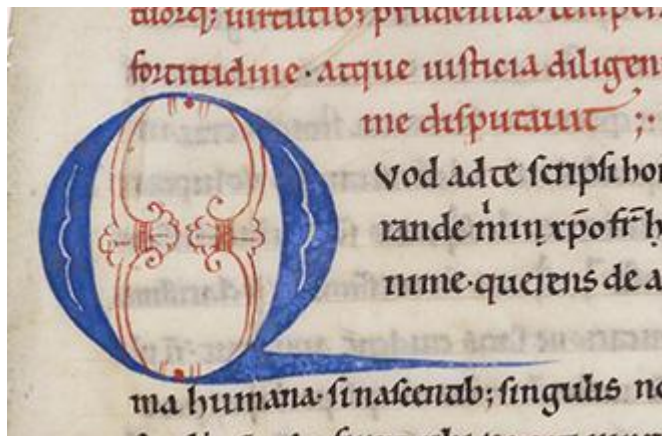 tuorq; uirtutib; prudentia temper
fortitudine · atque iusticia diligen
me disputauit ;·
Quod ad te scripsi hon
rande
nime · querens de a
ma humana · si nascentib; singulis no